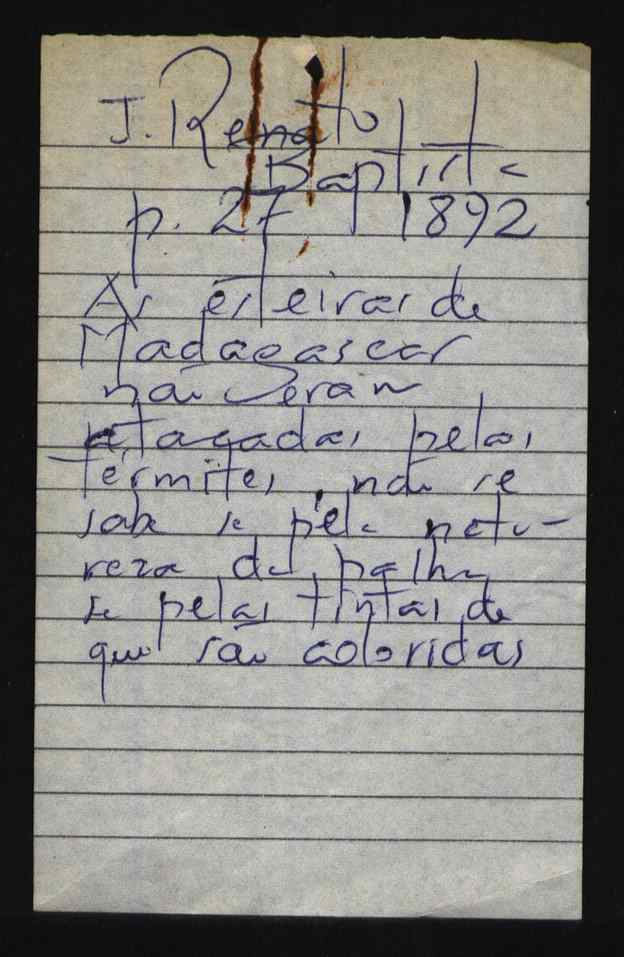 J. Renato
Baptista
p. 27 1892
As esteiras de
Madagascar
não eran
atacadas pelas
térmites, não se
sabe se pela natu-
reza da palha,
se pelas tintas de
que são coloridas